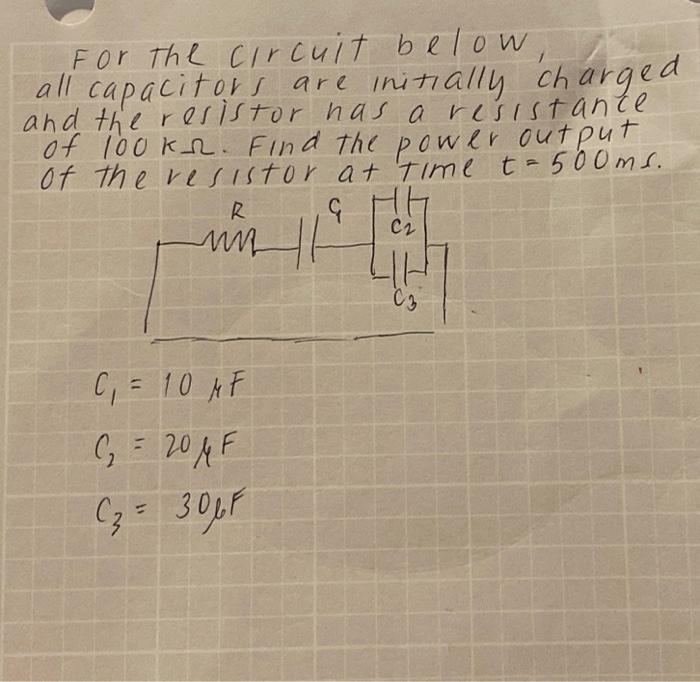 For the circuit below,
all capacitors are initially charged
and the resistor has a resistance
of 100 kΩ. Find the power output
of the resistor at time t = 500ms.
R C₁ C₂
C₃
C₁ = 10 μF
C₂ = 20 μF
C₃ = 30 μF